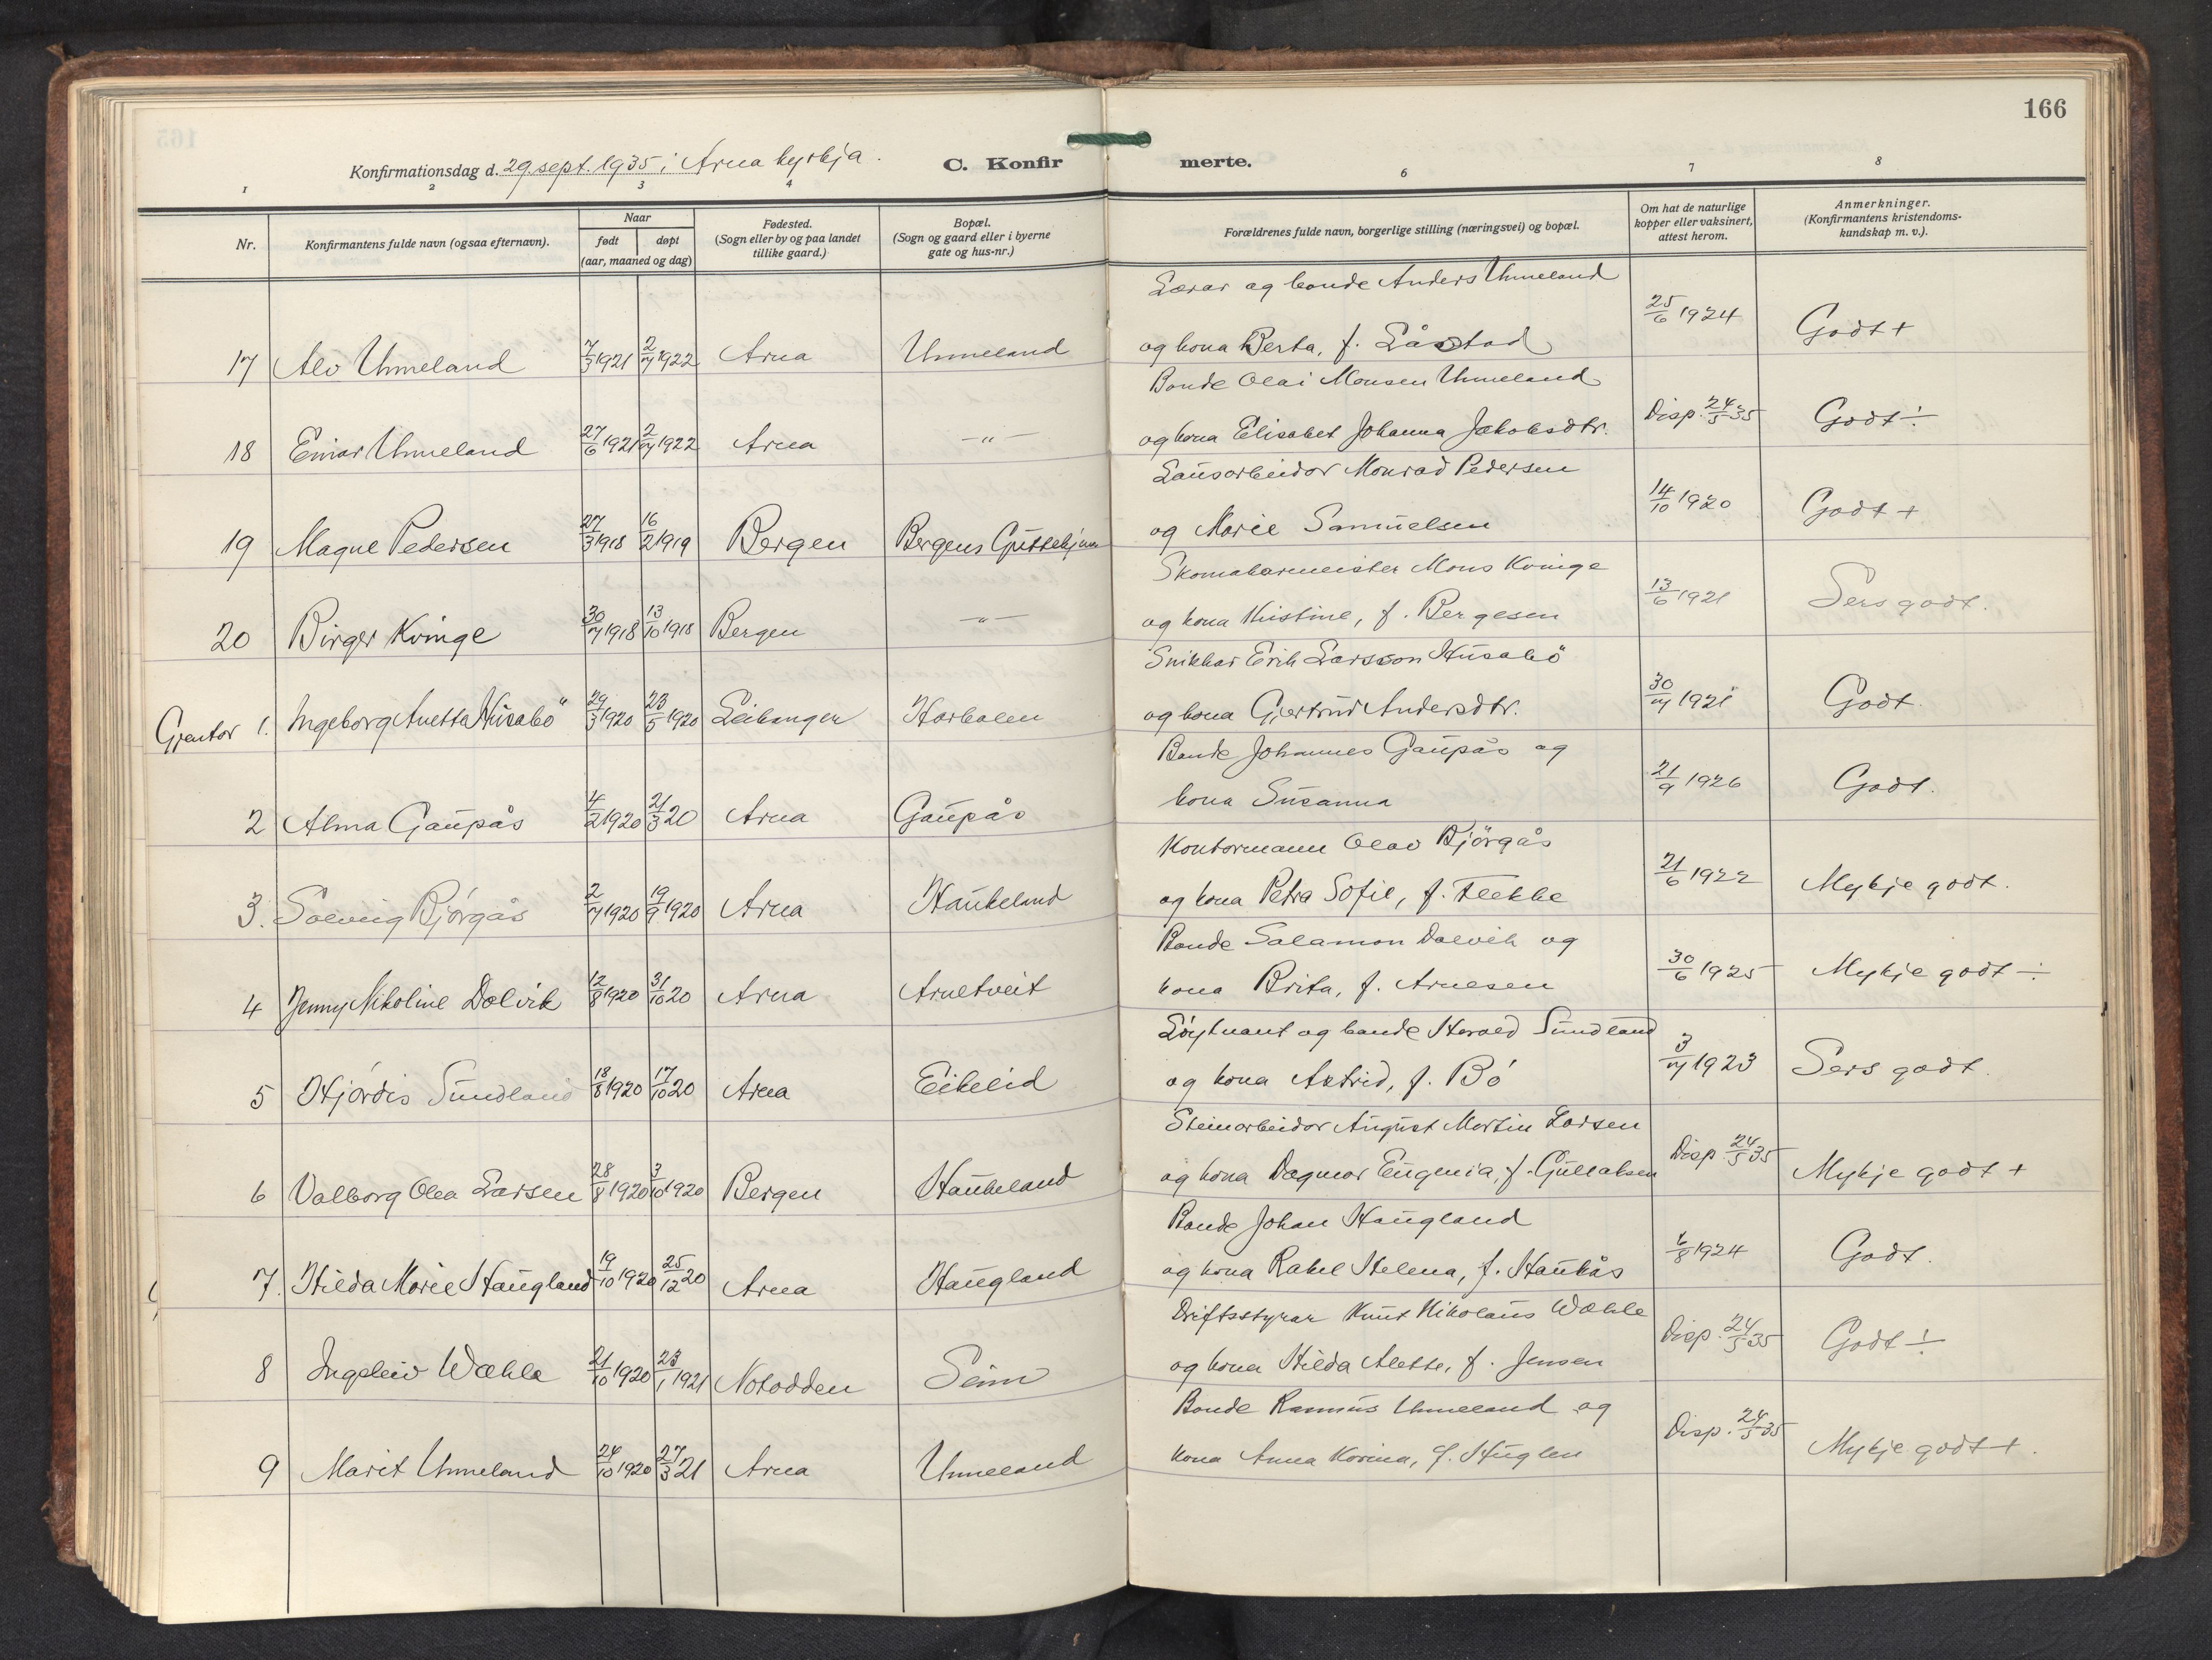 166
Konfirmationsdag d. 29. sept. 1935 i Arna kyrkja. C. Konfirmerte.
1 2 3 4 6 7 8
Nr. Konfirmantens fulde navn (ogsaa efternavn). Naar født døpt (aar, maaned og dag) Fødested. (Sogn eller by og paa landet tillike gaard.) Bopæl. (Sogn og gaard eller i byerne gate og hus-nr.) Forældrenes fulde navn, borgerlige stilling (næringsvei) og bopæl. Om hat de naturlige kopper eller vaksinert, attest herom. Anmerkninger. (Konfirmantens kristendoms-kundskap m. v.).
Lærar og bonde Anders Unneland
17 Alv Unneland 7/3 1921 2/7 1922 Arna Unneland og kona Berta, f. Låstad 25/6 1924 Godt +
Bonde Olai Monsen Unneland
18 Einar Unneland 27/6 1921 2/7 1922 Arna -"- og kona Elisabet Johanna Jakobsdtr. Disp. 24/5 35 Godt ÷
Lausarbeidar Monrad Pedersen
19 Magne Pedersen 27/3 1918 16/2 1919 Bergen Bergens Guttehjem og Marie Samuelsen 14/10 1920 Godt +
Skomakarmeister Mons Kvinge
20 Birger Kvinge 30/7 1918 13/10 1918 Bergen -"- og kona Kristine, f. Bergesen 13/6 1921 Sers godt.
Snikkar Erik Larsson Husabö
Gjentor 1. Ingeborg Anetta Husabö 29/3 1920 23/5 1920 Leikanger Harbalen og kona Gjertrud Andersdtr. 30/7 1921 Godt.
Bonde Johannes Gaupås og
2 Alma Gaupås 4/2 1920 21/3 20 Arna Gaupås kona Susanna 21/9 1926 Godt.
Kontormann Olav Bjørgås
3. Solveig Bjørgås 2/7 1920 19/9 1920 Arna Haukeland og kona Petra Sofie, f. Flekke 21/6 1922 Mykje godt.
Bonde Salamon Dalvik og
4 Jenny Nikoline Dalvik 12/8 1920 31/10 20 Arna Arnetveit kona Brita, f. Arnesen 30/6 1925 Mykje godt ÷
Løytnant og bonde Harald Sundland
5 Hjørdis Sundland 18/8 1920 17/10 20 Arna Eikelid og kona Astrid, f. Bø 3/7 1923 Sers godt.
Steinarbeidar August Martin Larsen
6 Valborg Olea Larsen 28/8 1920 3/10 1920 Bergen Haukeland og kona Dagmar Eugenia, f. Gullaksen Disp. 24/5 35 Mykje godt +
Bonde Johan Haugland
7. Hilda Marie Haugland 19/10 1920 25/12 20 Arna Haugland og kona Rakel Helena, f. Haukås 6/8 1924 Godt.
Driftsstyrar Knut Nikolaus Wæhle
8 Ingeleiv Wæhle 21/10 1920 23/1 1921 Notodden Seim og kona Hilda Alette, f. Jensen Disp. 24/5 35 Godt ÷
Bonde Rasmus Unneland og
9 Marit Unneland 24/10 1920 27/3 21 Arna Unneland kona Anna Korina, f. Huglen Disp. 24/5 35 Mykje godt +.